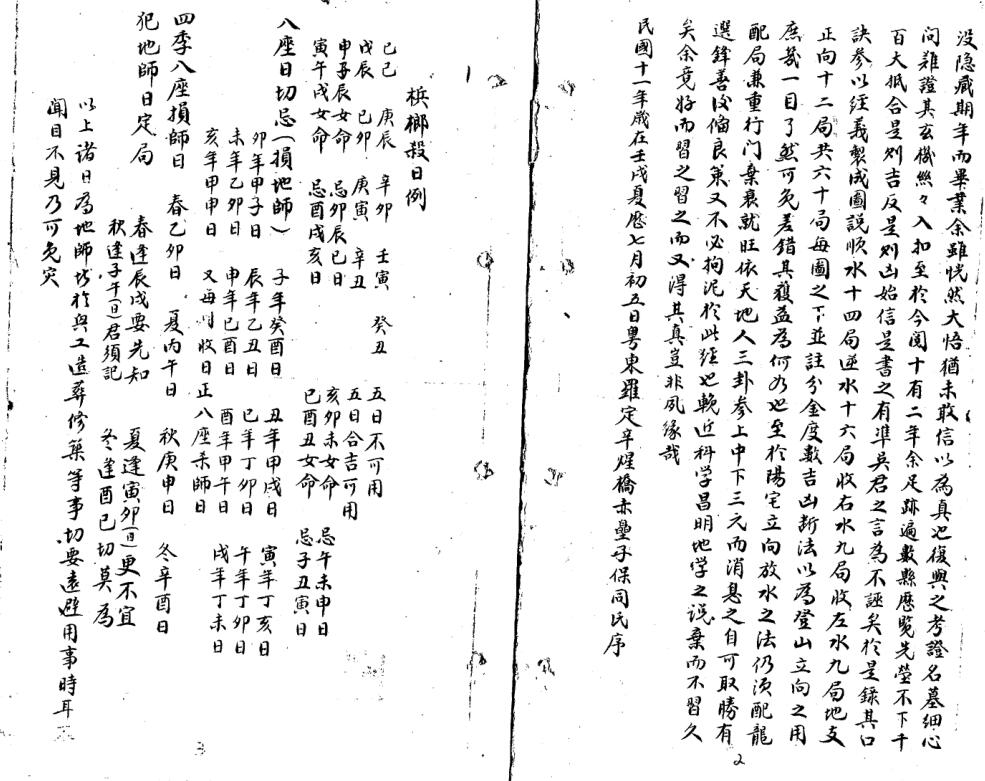 没隐藏期年而畢業余雖恍然大悟猶未敢信以為真也復與之考證名墓細心
问難證其玄機絲々入扣至於今閱十有二年余足跡遍數縣歷覧先塋不下千
百大抵合是则吉反是则凶始信是書之有準吳君之言為不誣矣於是錄其口
訣參以经義製成圖說順水十四局逆水十六局收右水九局收左水九局地支
正向十二局共六十局每圖之下並註分金度數吉凶断法以為登山立向之用
庶幾一目了然可免差錯其獲益為何如也至於陽宅立向放水之法仍须配龍
配局兼重行门棄衰就旺依天地人三卦參上中下三元而消息之自可取勝有
選鋒善後偹良策又不必拘泥於此经也輓近科学昌明地学之説棄而不習久
矣余竟好而習之習之而又得其真豈非夙缘哉
民國十一年歲在壬戌夏歷七月初五日粤東羅定辛煋橋赤壘子保同民序
2
梹榔殺日例
己巳 庚辰 辛卯 壬寅 癸丑 五日不可用
戊辰 己卯 庚寅 辛丑 五日合吉可用
申子辰女命 忌卯辰巳日 亥卯未女命 忌午未申日
寅午戌女命 忌酉戌亥日 巳酉丑女命 忌子丑寅日
八座日切忌(損地師) 子年癸酉日 丑年甲戌日 寅年丁亥日
卯年甲子日 辰年乙丑日 巳年丁卯日 午年丁卯日
未年乙卯日 申年巳酉日 酉年甲午日 戌年丁未日
亥年甲申日 又每月收日正八座杀師日
四季八座損師日 春乙卯日 夏丙午日 秋庚申日 冬辛酉日
犯地師日定局 春逢辰戌要先知 夏逢寅卯(日)更不宜
秋逢子午(日)君须記 冬逢酉巳切莫為
以上諸日為地師皆於與工造葬修築等事切要遠避用事時耳
闻目不見乃可免灾
3